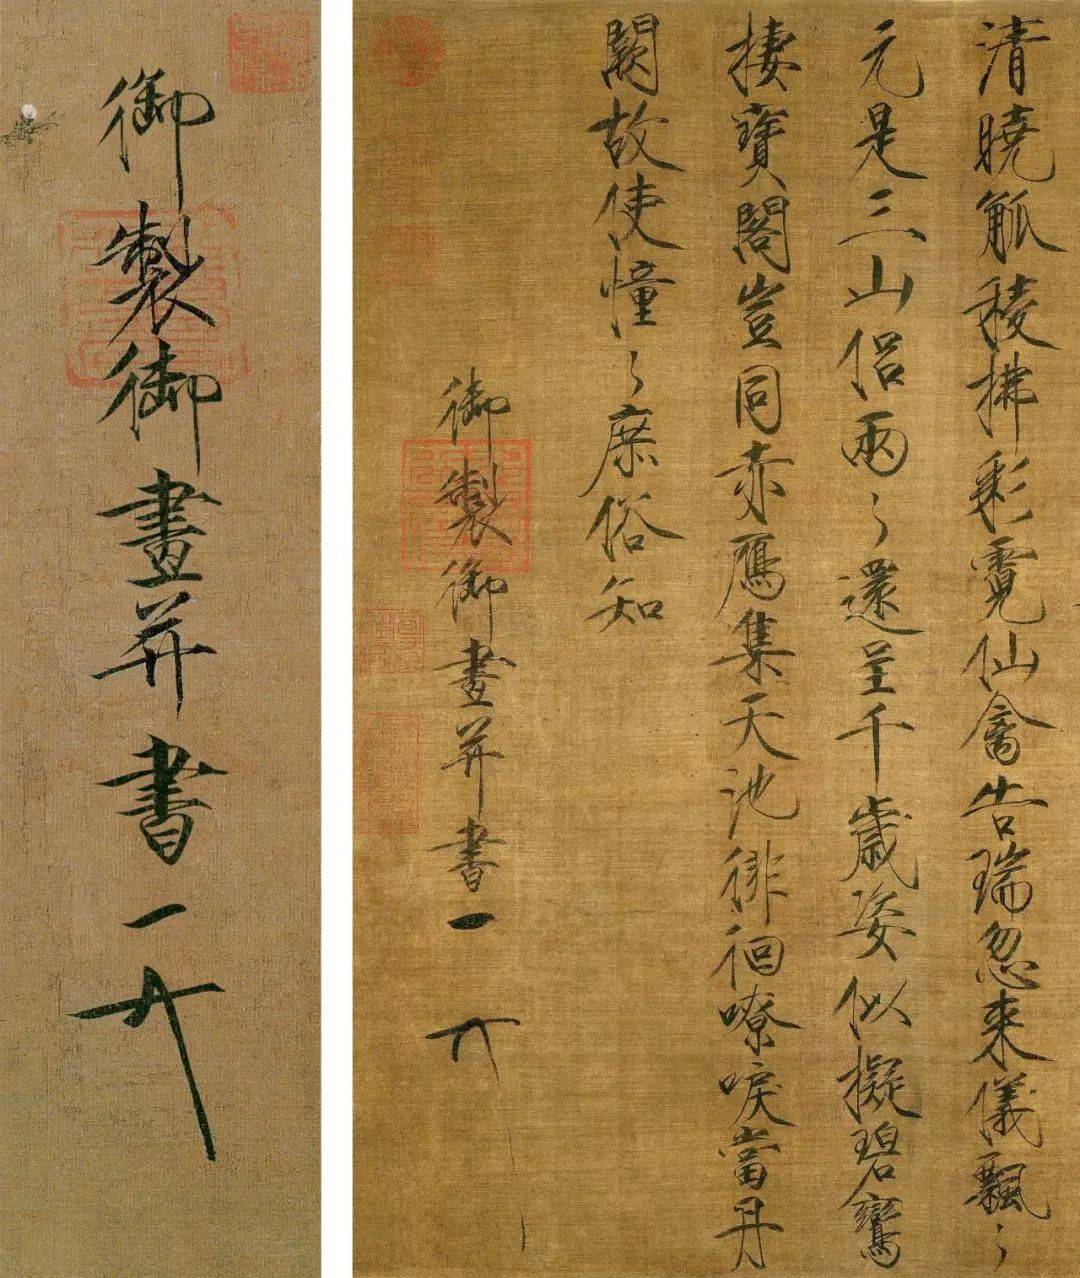 清曉觚稜拂彩霓仙禽告瑞忽來儀飄〻
元是三山侶兩〻還呈千歲姿似擬碧鸞
棲寶閣豈同赤鴈集天池徘徊嘹唳當丹
闕故使憧〻庶俗知
御製御畫并書
御製御畫并書